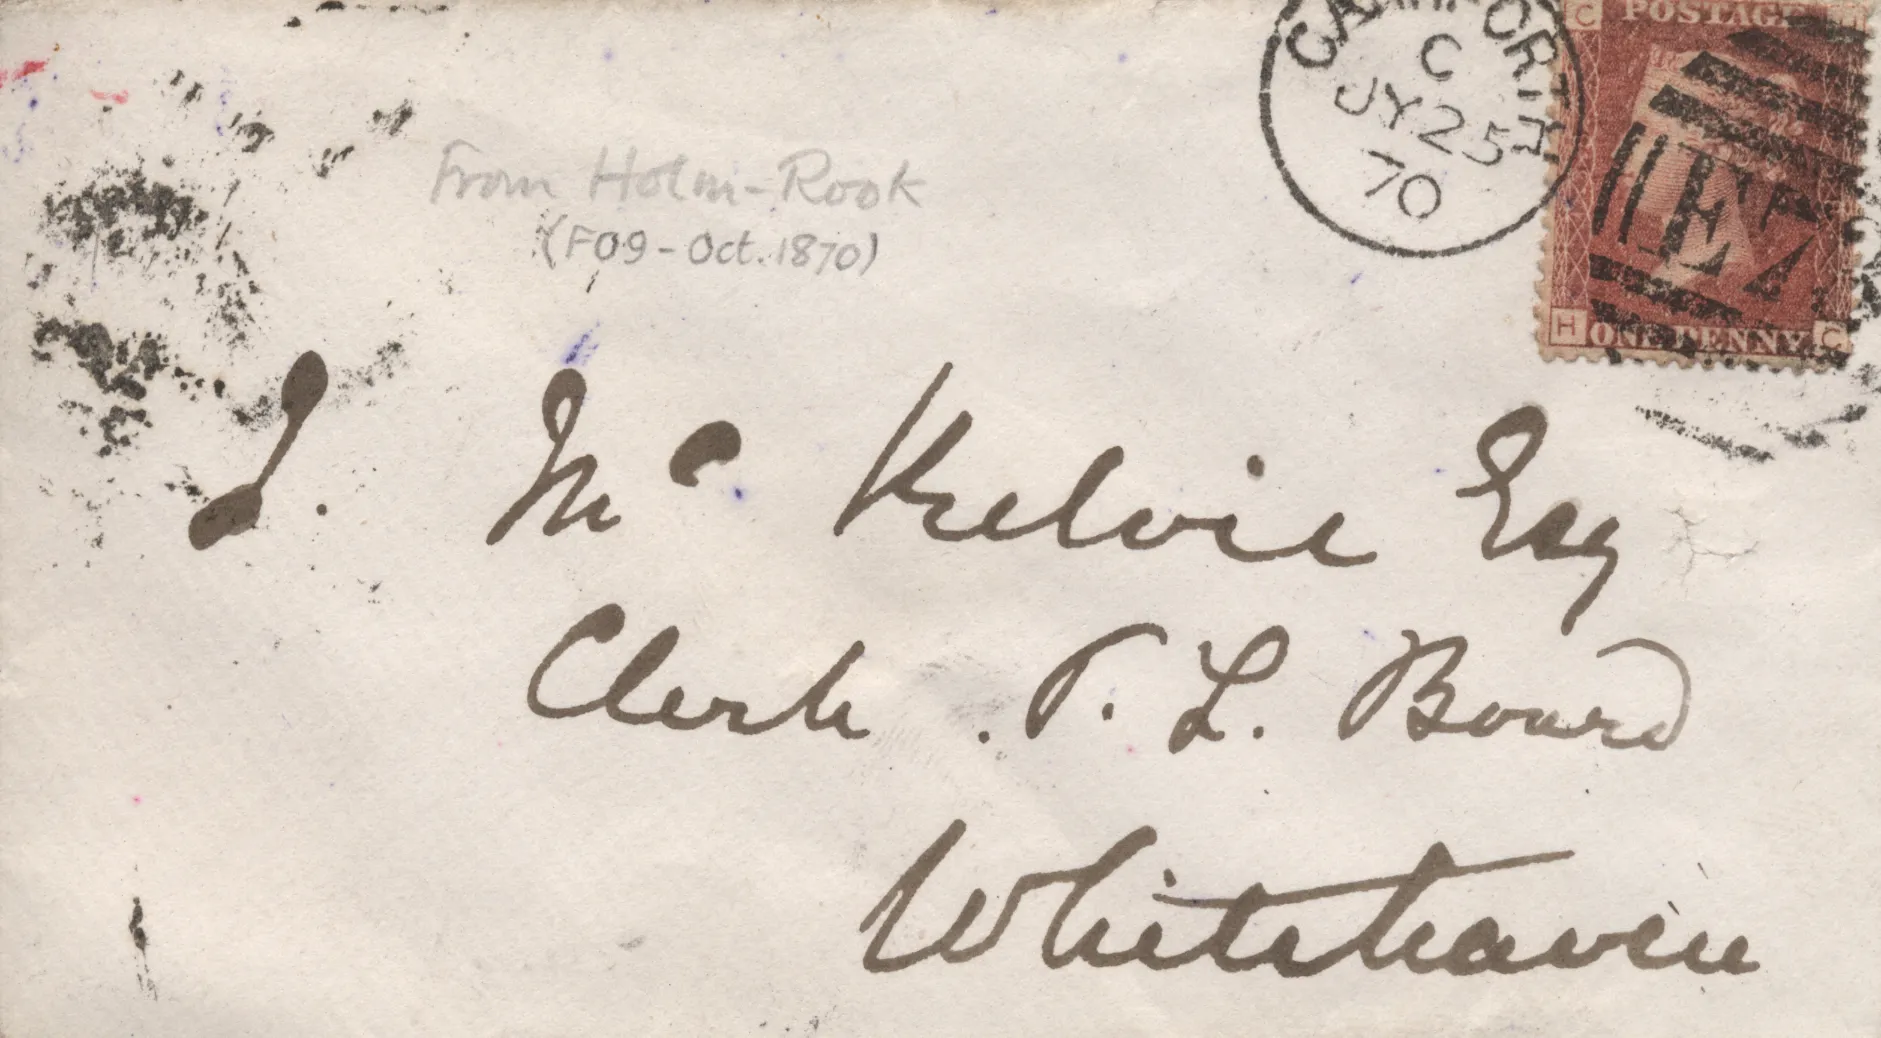 CARNFORTH
C
JY 25
70
C POSTAGE H
E
H ONE PENNY C
From Holm-Rook
(F09 - Oct. 1870)
J. Mc Kelvie Esq
Clerk . T. L. Board
Whitehaven